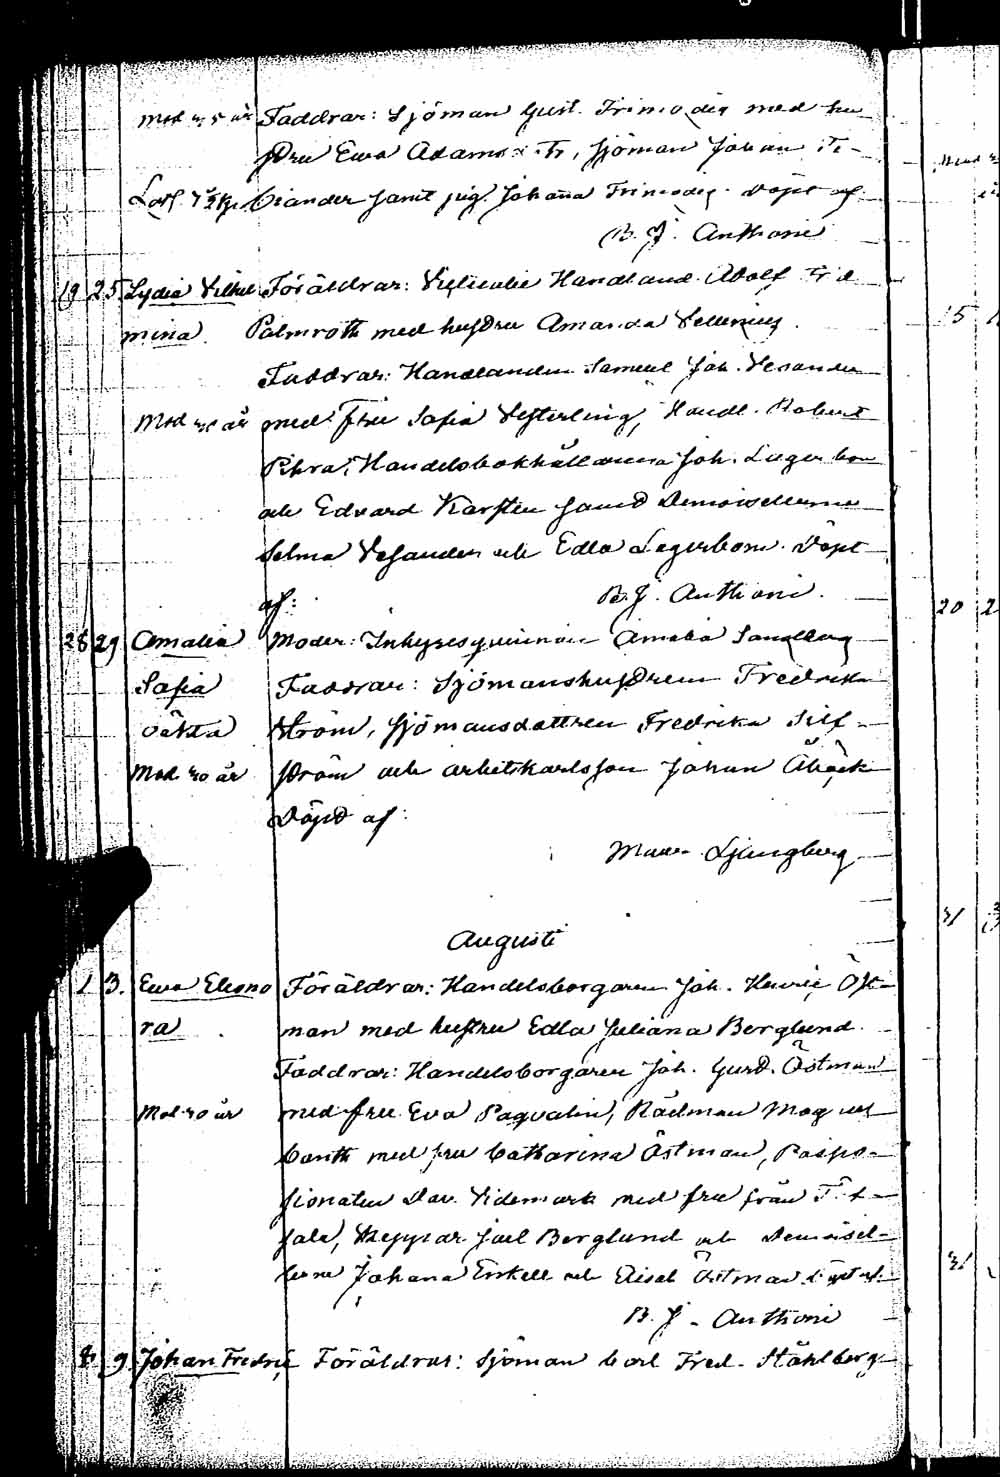 Mod 35 år Faddrar: Sjöman Gust. Frimodig med hu
stru Ewa Adams Tr, sjöman Johan Fe-
ciander samt pig. Johanna Frimodig. Döpt af
B. J. Anthoni
19 25 Lydia Vilhel Föräldrar: Victualie Handland. Adolf Frd
mina. Palmroth med hustru Amanda Vellenius.
Faddrar: Handlanden Samuel Joh. Vesander
Mod år med Fru Sofia Vesterling, Handl. Robert
Pihra, Handelsbokhållarena Joh. Lagerbom
och Edvard Karsten samt Demoisellerna
Selma Vesander och Edla Lagerbom. Döpt
af: B. J. Anthoni.
28 29 Amalia Moder: Inhysesqvinnan Amalia Sandberg
Sofia Faddrar: Sjömanshustrun Fredrika
oäkta Ström, sjömansdottren Fredrika Silf-
Mod 30 år ström och arbetskarlsson Johan Åbäck
Döpt af:
Ljungberg
Augusti
1 3. Ewa Eleono Föräldrar: Handelsborgaren Joh. Henric Öst-
ra man med hustru Edla Juliana Berglund.
Faddrar: Handelsborgaren Joh. Gust. Östman
Mod 30 år med fru Eva Paqvalin, Rådman Magnus
Canth med fru Catharina Östman, Posses-
sionaten Dav. Videmark med fru från
sala, Skeppar Joel Berglund och Demoisel-
lerna Johana Enkell och Östman döpt af
B. J. Anthoni
8 9 Johan Fredric Föräldrar: Sjöman Carl Fred. Ståhlberg
15
20 2
31
31